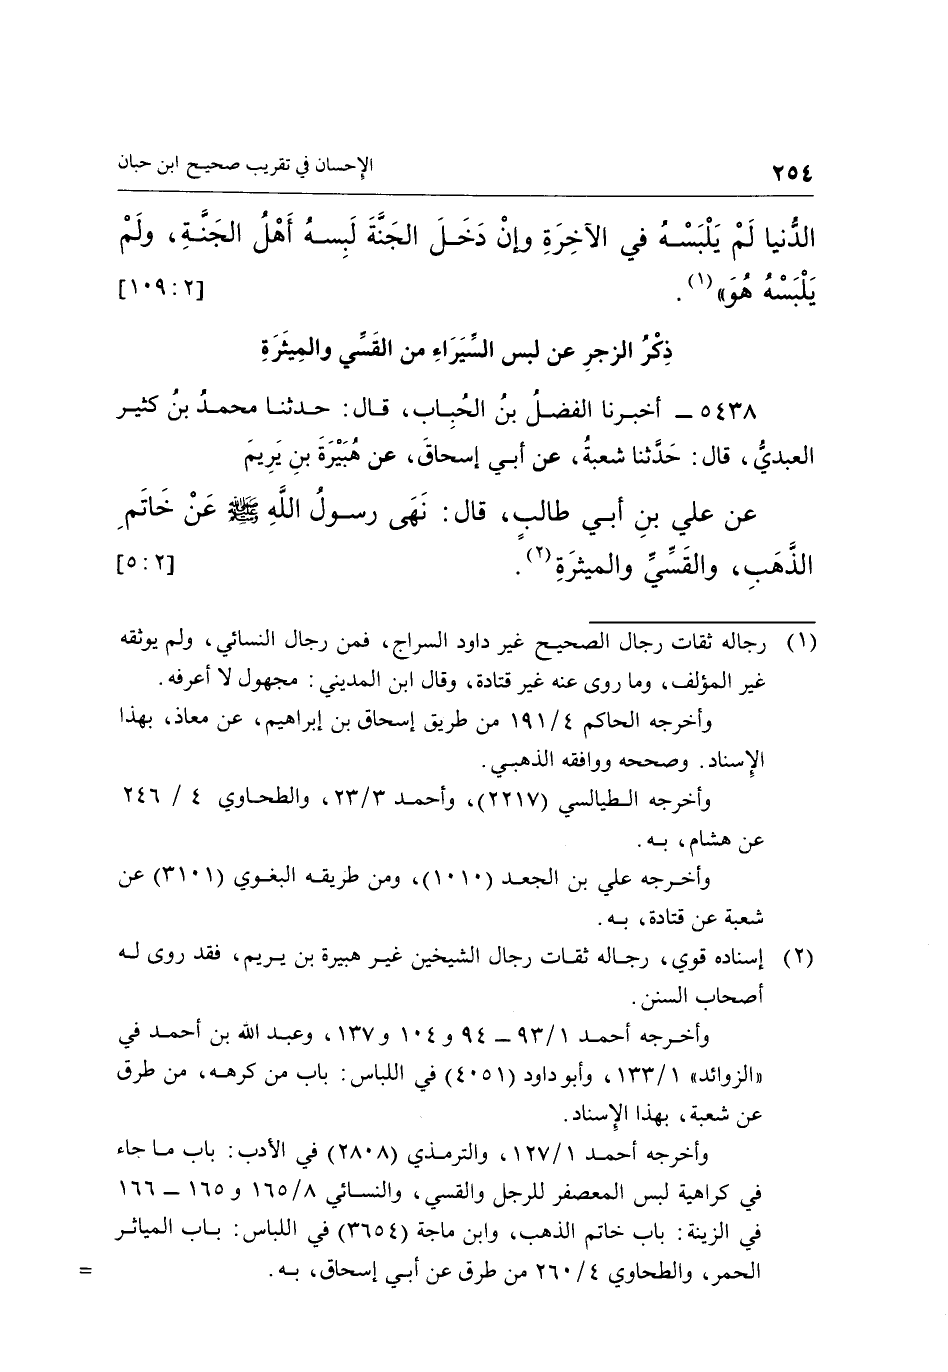 ٢٥٤ الإحسان في تقريب صحيح ابن حبان
الدُّنيا لَمْ يَلْبَسْهُ في الآخِرَةِ وإنْ دَخَلَ الجَنَّةَ لَبِسهُ أَهْلُ الجَنَّةِ، ولَمْ
يَلْبَسْهُ هُوَ»(١). [١٠٩:٢]
ذِكْرُ الزجرِ عن لبس السِّيَرَاءِ من القَسِّي والمِيثَرَةِ
٥٤٣٨ ـ أخبرنا الفضلُ بنُ الحُباب، قال: حدثنا محمدُ بنُ كثير
العبديُّ، قال: حَدَّثنا شعبةُ، عن أبي إسحاقَ، عن هُبَيْرَةَ بنِ يَرِيمَ
عن علي بنِ أبي طالبٍ، قال: نَهَى رسولُ اللَّهِ ﷺ عَنْ خَاتَمِ
الذَّهَبِ، والقَسِّيِّ والميثرَةِ(٢). [٥:٢]
(١) رجاله ثقات رجال الصحيح غير داود السراج، فمن رجال النسائي، ولم يوثقه
غير المؤلف، وما روى عنه غير قتادة، وقال ابن المديني: مجهول لا أعرفه.
وأخرجه الحاكم ١٩١/٤ من طريق إسحاق بن إبراهيم، عن معاذ، بهذا
الإسناد. وصححه ووافقه الذهبي.
وأخرجه الطيالسي (٢٢١٧)، وأحمد ٢٣/٣، والطحاوي ٤ / ٢٤٦
عن هشام، به.
وأخرجه علي بن الجعد (١٠١٠)، ومن طريقه البغوي (٣١٠١) عن
شعبة عن قتادة، به.
(٢) إسناده قوي، رجاله ثقات رجال الشيخين غير هبيرة بن يريم، فقد روى له
أصحاب السنن.
وأخرجه أحمد ٩٣/١ ـ ٩٤ و ١٠٤ و ١٣٧، وعبد الله بن أحمد في
«الزوائد» ١٣٣/١، وأبو داود (٤٠٥١) في اللباس: باب من كرهه، من طرق
عن شعبة، بهذا الإسناد.
وأخرجه أحمد ١٢٧/١، والترمذي (٢٨٠٨) في الأدب: باب ما جاء
في كراهية لبس المعصفر للرجل والقسي، والنسائي ١٦٥/٨ و ١٦٥ ـ ١٦٦
في الزينة: باب خاتم الذهب، وابن ماجة (٣٦٥٤) في اللباس: باب المياثر
الحمر، والطحاوي ٢٦٠/٤ من طرق عن أبي إسحاق، به. =